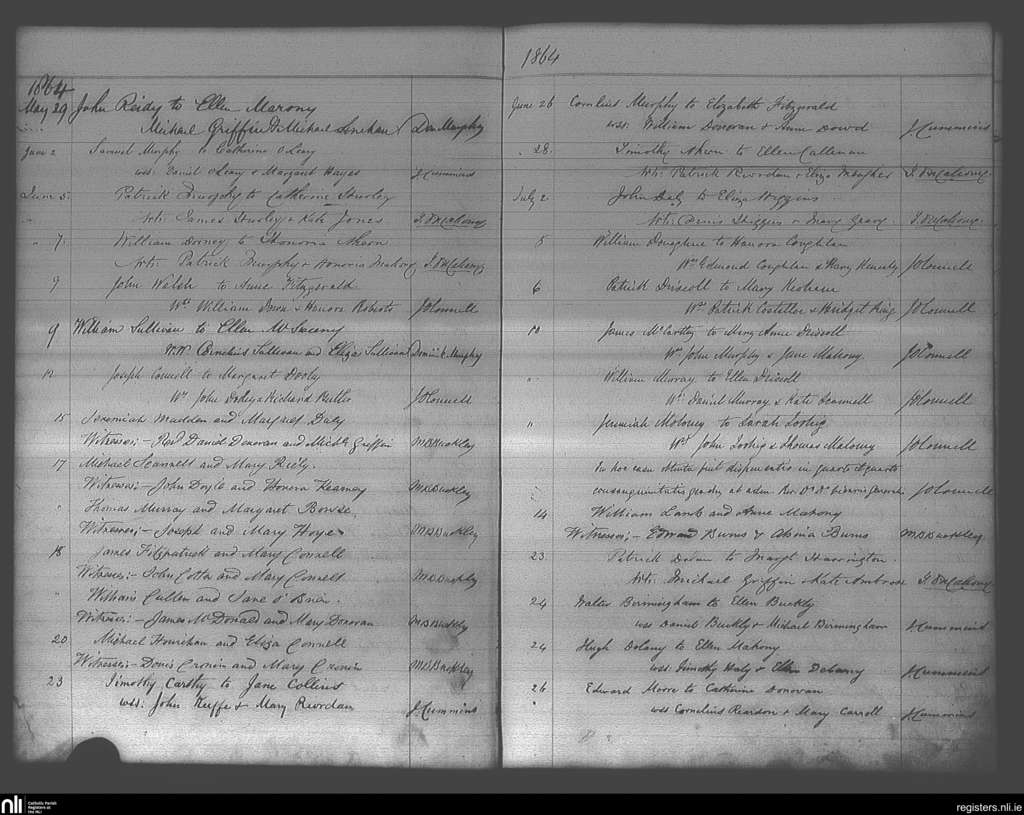 1864
May 29 John Reidy to Ellen Marony
Michael Griffin & Michael Linehan Dan Murphy
June 2 Samuel Murphy to Catherine O'Leary
wss: Daniel O'Leary & Margaret Hayes J. Cummins
June 5. Patrick Murphy to Catherine Hurley
Nts: James Hurley & Kate Jones T. O'Mahony
" 7. William Dorney to Honoria Ahern
Nts: Patrick Murphy & Honoria Mahony T. O'Mahony
9 John Walsh to Anne Fitzgerald
Ws William & Honora Roberts J O'Connell
9 William Sullivan to Ellen McSweeny
WW. Cornelius Sullivan and Eliza Sullivan Dominick Murphy
12 Joseph Connell to Margaret Dooly
Ws John & Richard J O'Connell
15 Jeremiah Madden and Margaret Daly
Witnesses:- Revd David Donovan and Michl. Griffin M.B. Buckley
17 Michael Scannell and Mary Riely.
Witnesses:- John Doyle and Honora Kearney M.B. Buckley
" Thomas Murray and Margaret Bowse.
Witnesses:- Joseph and Mary Hoye. M.B. Buckley
18 James Fitzpatrick and Mary Connell
Witness:- John Cotter and Mary Connell M.B. Buckley
" William Cullen and Jane O'Brien.
Witness:- James McDonald and Mary Donovan M.B. Buckley
20 Michael Hourihan and Eliza Connell
Witnesses:- Denis Cronin and Mary Cronin M.B. Buckley
23 Timothy Carthy to Jane Collins
wss: John Keeffe & Mary Riordan J. Cummins
1864
June 26 Cornelius Murphy to Elizabeth Fitzgerald
wss: William Donovan & Anne Dowd J Cummins
" 28. Timothy Ahern to Ellen Callanan
Nts: Patrick Riordan & Eliza Meagher T. O'Mahony.
July 2 John Daly to Eliza Higgins
Nts: Denis Higgins & Mary Geary T. O'Mahony.
5 William Donoghue to Honora Coughlan
Ws Edmond Coughlan & Mary Kennedy J O'Connell
6 Patrick Driscoll to Mary Keohane
Ws Patrick Costelloe & Bridget King J O'Connell
10 James McCarthy to Mary Anne Driscoll
Ws John Murphy & Jane Mahony. J O'Connell
" William Murray to Ellen Driscoll
Ws Daniel Murray & Kate Scannell J O'Connell
11 Jeremiah Moloney to Sarah
Ws John & Thomas Moloney J O'Connell
In hoc casu obtenta fuit dispensatio in quarto et quarto
consanguinitatis gradu ab adm. Rev. J O'Connell
14 William Lamb and Anne Mahony
Witnesses:- Edward Burns & Burns M.B. Buckley.
23 Patrick to Margt Harrington
Nts: Michael Griffin & Kate Ambrose T. O'Mahony
24 Walter Birmingham to Ellen Buckly
wss Daniel Buckly & Michael Birmingham J. Cummins
24 Hugh Delany to Ellen Mahony
wss: Timothy Haly & Ellen Delaney J Cummins
26 Edward Moore to Catherine Donovan
wss Cornelius Reardon & Mary Carroll J. Cummins
nli Catholic Parish
Registers at
the NLI
registers.nli.ie